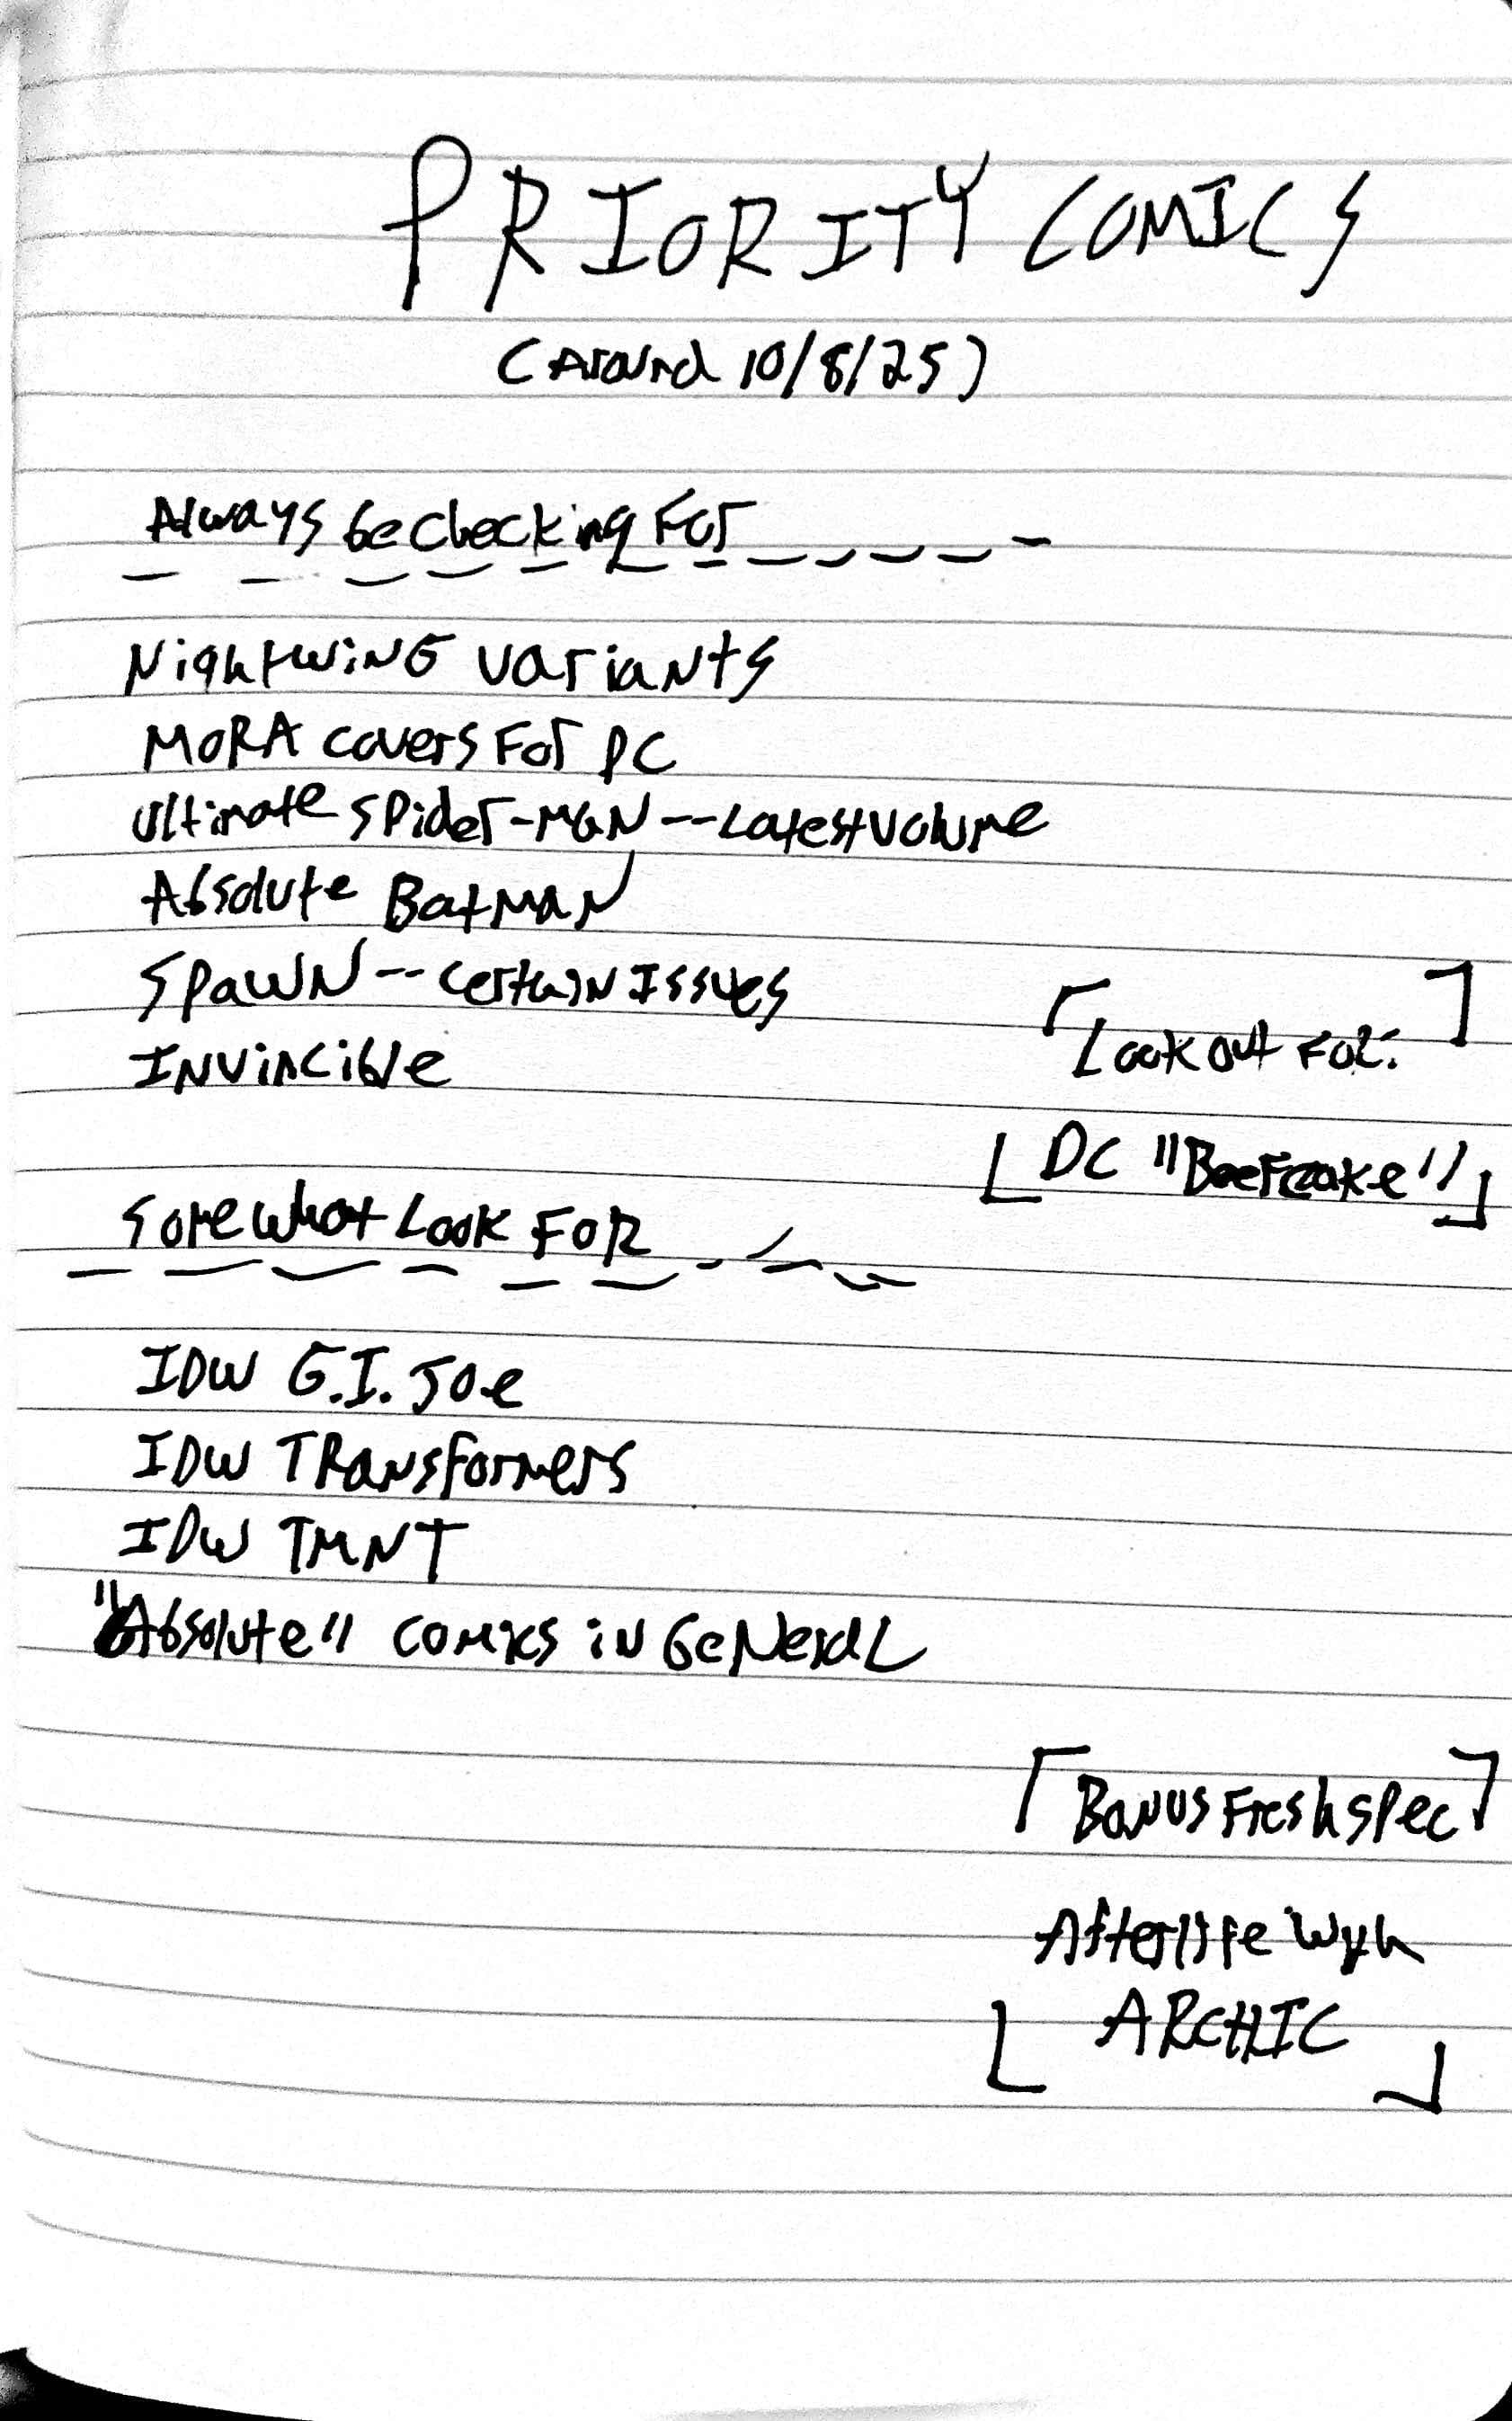 PRIORITY COMICS
(Around 10/8/25)
Always be checking For
NightwiNG variaNts
MORA covers For PC
Ultimate Spider-MaN--Latest volume
Absolute BatmaN
SpawN--certaiN Issues
INViNcible
Look out FOR:
DC "Beefcake"
Somewhat Look FOR
IDW G.I. Joe
IDW TRaNsformers
IDW TMNT
"Absolute" comics iN GeNeral
BoNus Fresh spec
Afterlife with
ARCHIE